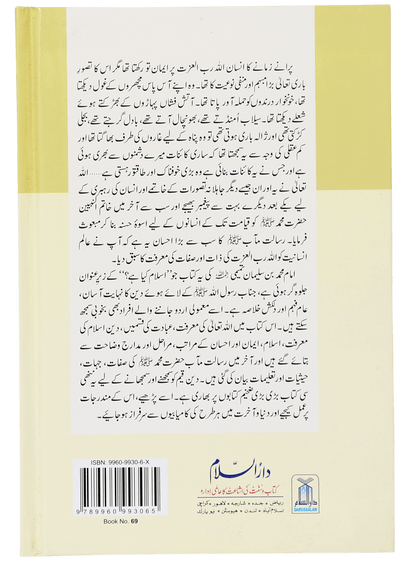 پرانے زمانے کا انسان اللہ رب العزت پر ایمان تو رکھتا تھا مگر اس کا تصورِ
باری تعالیٰ بڑا مبہم اور منفی نوعیت کا تھا۔ وہ اپنے آس پاس مچھروں کے غول دیکھتا
تھا، خونخوار درندوں کو حملہ آور پاتا تھا۔ آتش فشاں پہاڑوں کے بھڑکتے ہوئے
شعلے دیکھتا تھا۔ سیلاب اُمنڈتے تھے، بھونچال آتے تھے، بادل گرجتے تھے، بجلی
کڑکتی تھی اور ژالہ باری ہوتی تھی تو وہ پناہ کے لیے غاروں کی طرف بھاگتا تھا اور
کم عقلی کی وجہ سے یہ سمجھتا تھا کہ ساری کائنات میرے دشمنوں سے بھری ہوئی
ہے اور جس نے یہ کائنات بنائی ہے وہ بڑی خوفناک اور طاقتور ہستی ہے ...... اللہ
تعالیٰ نے یہ اور ان جیسے دیگر جاہلانہ تصورات کے خاتمے اور انسان کی رہبری کے
لیے یکے بعد دیگرے بہت سے پیغمبر بھیجے اور سب سے آخر میں خاتم النبیین
حضرت محمد ﷺ کو قیامت تک کے انسانوں کے لیے اسوۂ حسنہ بنا کر مبعوث
فرمایا۔ رسالت مآب ﷺ کا سب سے بڑا احسان یہ ہے کہ آپ نے عالمِ
انسانیت کو اللہ رب العزت کی ذات اور صفات کی معرفت کا سبق دیا۔
امام محمد بن سلیمان تمیمی رحمہ اللہ کی یہ کتاب جو "اسلام کیا ہے؟" کے زیر عنوان
جلوہ گر ہوئی ہے، جناب رسول اللہ ﷺ کے لائے ہوئے دین کا نہایت آسان،
عام فہم اور دلکش خلاصہ ہے۔ اسے معمولی اردو جاننے والے افراد بھی بخوبی سمجھ
سکتے ہیں۔ اس کتاب میں اللہ تعالیٰ کی معرفت، عبادت کی قسمیں، دین اسلام کی
معرفت، اسلام، ایمان اور احسان کے مراتب، مراحل اور مدارج وضاحت سے
بتائے گئے ہیں اور آخر میں رسالت مآب حضرت محمد ﷺ کی صفات، جہات،
حیثیات اور تعلیمات بیان کی گئی ہیں۔ دین قیم کو سمجھنے اور سمجھانے کے لیے یہ ننھی
سی کتاب بڑی بڑی ضخیم کتابوں پر بھاری ہے۔ اسے پڑھیے، اس کے مندرجات
پر عمل کیجیے اور دنیا و آخرت میں ہر طرح کی کامیابیوں سے سرفراز ہو جائیے۔
ISBN: 9960-9930-6-X
9 789960 993065
Book No. 69
دارالسلام
کتاب و سنت کی اشاعت کا عالمی ادارہ
ریاض ، جدہ ، شارجہ ، لاہور ، کراچی
اسلام آباد ، لندن ، ہیوسٹن ، نیو یارک
دارالسلام
DARUSSALAM